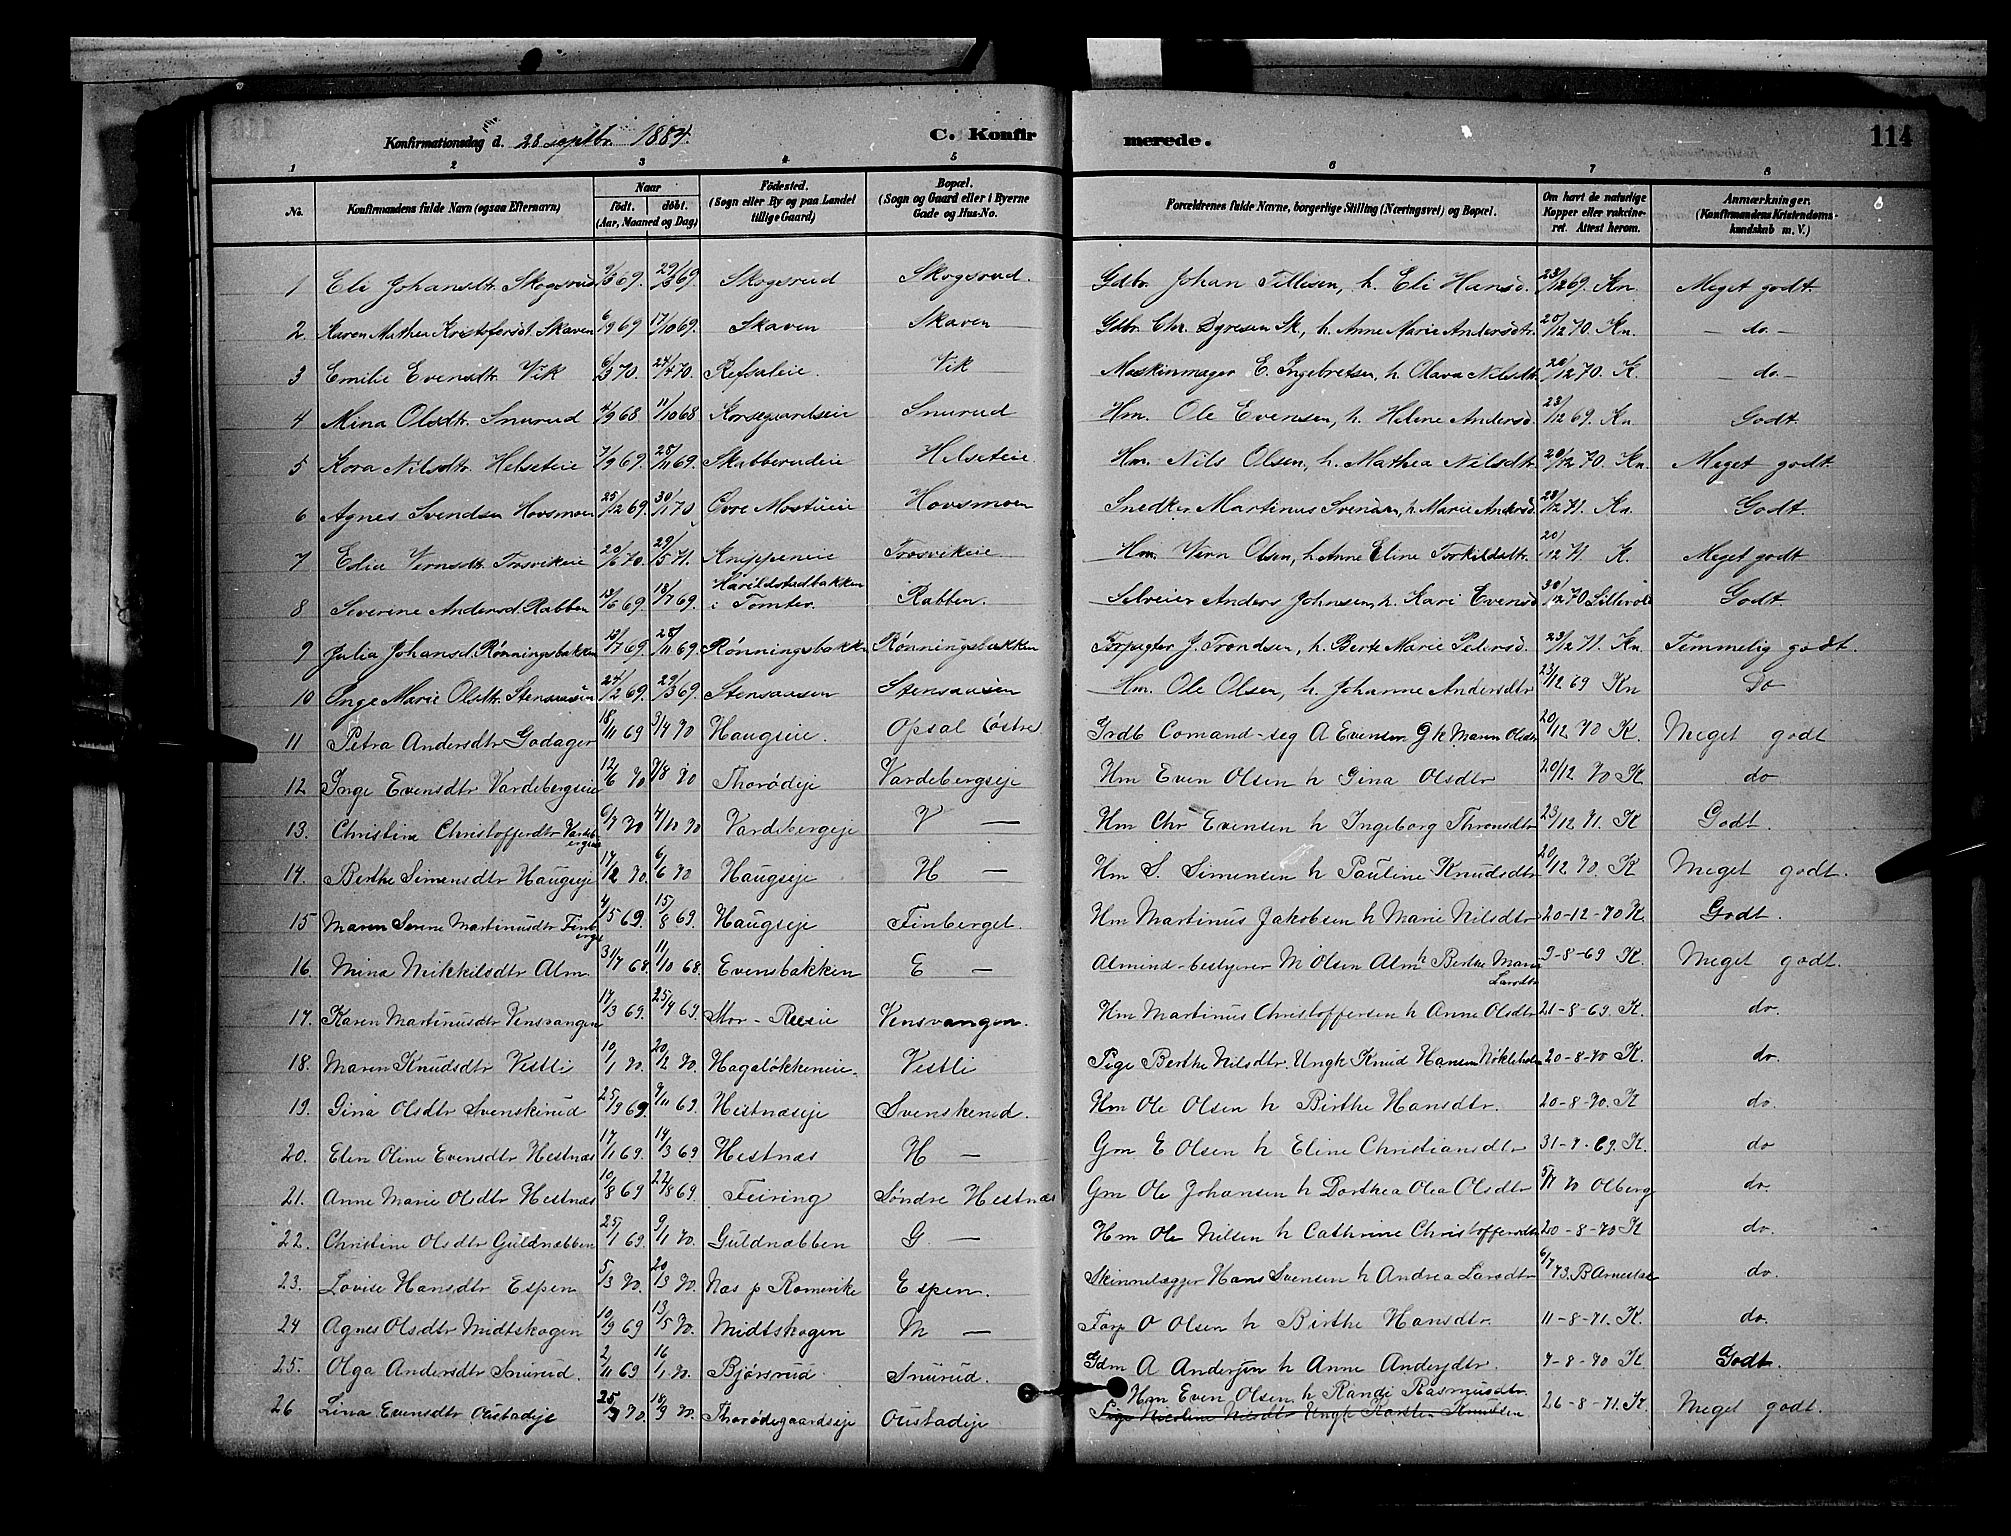 Konfirmationsdag d. 28 septbr. 1884.
C. Konfirmerede.
114
1 2 3 4 5 6 7 8
No.
Konfirmandens fulde Navn (ogsaa Efternavn)
Naar
födt. döbt.
(Aar, Maaned og Dag)
Födested.
(Sogn eller By og paa Landet tillige Gaard)
Bopæl.
(Sogn og Gaard eller i Byerne Gade og Hus-No.
Forældrenes fulde Navne, borgerlige Stilling (Næringsvei) og Bopæl.
Om havt de naturlige Kopper eller vakcineret. Attest herom.
Anmærkninger.
(Konfirmandens Kristendomskundskab m. V.)
1 Eli Johansdtr. Skogsrud 9/3 69. 29/3 69. Skogsrud Skogsrud. Gdbr. Johan Tillesen, h. Eli Hansd. 23/12 69. Kn. Meget godt.
2. Karen Mathea Kristofersdt. Skaven 6/9 69 17/10 69. Skaven Skaven Gdbr. Chr. Dyresen Sk., h. Anne Marie Andersdtr. 20/12 70. Kn. - do -
3 Emilie Evensdtr. Vik 6/3 70. 24/4 70. Refsaleie. Vik Maskinmager E. Ingebretsen, h. Olava Nilsdtr. 20/12 70. K. - do -
4 Mina Olsdtr. Snurud 4/9 68 11/10 68 Korsegaardseie Snurud Hm. Ole Evensen, h. Helene Andersd. 23/12 69. Kn Godt.
5 Kora Nilsdtr. Helseteie 7/9 69. 28/11 69. Skabberudeie Helseteie Hm. Nils Olsen, h. Mathea Nilsdtr. 20/12 70. Kn. Meget godt.
6 Agnes Svendsen Hovsmoen 25/12 69. 30/1 70 Övre Mostueie Hovsmoen Snedker Martinus Svensen, h. Marie Andersd. 23/12 71. Kn. Godt.
7 Edia Vernsdtr. Trosvikeie 20/6 70. 29/5 71. Knippeneie Trosvikeie Hm. Vern Olsen, h. Anne Eline Torkildsdtr. 20/12 71 K. Meget godt.
8 Severine Andersd. Rabben 13/6 69. 18/7 69. Harildstadbakken i Tomter. Rabben. Selveier Anders Johnsen, h. Kari Evensd. 30/12 70 Godt.
9 Julia Johansd. Rønningsbakken 10/7 69. 28/11 69. Rønningsbakken Rønningsbakken Forpagter J. Trondsen, h. Berte Marie Petersd. 23/12 71. Kn. Temmelig godt.
10 Inge Marie Olsdtr. Stensaasen 24/2 69. 29/3 69. Stensaasen Stensaasen Hm. Ole Olsen, h. Johanne Andersdtr 23/12 69 Kn Do
11 Petra Andersdtr Godager 18/11 69 3/4 70 Haugseie. Opsal østre Gmdb Comand-seg A Evensen G h Maren Olsdtr 20/12 70 K. Meget godt
12 Inge Evensdtr Vardebergseie 12/6 70 7/8 70 Thorødeje Vardebergseje Hm Even Olsen h Gina Olsdtr 20/12 70 K do
13. Christine Christofferdtr Vardebergseie 6/7 70 4/10 70 Vardebergeje V — Hm Chr Evensen h Ingeborg Thronsdtr 23/12 71. K Godt.
14. Berthe Simensdtr Haugseje 17/2 70. 6/6 70 Haugseje H — Hm S. Simensen h Pauline Knudsdtr 20/12 70. K Meget godt.
15 Maren Serine Martinusdtr Finberget 4/5 69. 15/8 69. Haugseje Finberget. Hm Martinus Jakobsen h Marie Nilsdtr 20-12-70 K. Godt.
16. Mina Mikkilsdtr Alm 31/7 68. 11/10 68. Evensbakken E — Almind-bestyrer M Olsen Alm h Berthe Maren Larsdtr 9-8-69 K. Meget godt.
17. Karen Martinusdtr Vensvangen 17/3 69. 25/4 69. Stor-Reeie Vensvangen. Hm Martinus Christoffersen h Anne Olsdtr 21-8-69 K. do.
18. Maren Knudsdtr Vestli 10/1 70. 20/2 70. Hagaløkkeneie. Vestli Pige Berthe Nilsdtr. Ungk Knud Hansen Nøkleholm 20-8-70 K. do.
19. Gina Olsdtr Svenskerud 25/9 69. 7/11 69. Hestnæseje Svenskerud. Hm Ole Olsen h Birthe Hansdtr. 20-8-70. K do.
20. Elen Oline Evensdtr Hestnæs 17/1 69. 14/3 69 Hestnæs H — Gm E Olsen h Eline Christiansdtr 31-7-69. K. do
21. Anne Marie Olsdtr Hestnæs 10/8 69 22/8 69. Feiring Søndre Hestnæs Gm Ole Johansen h Dorthea Olea Olsdtr 5/7 70 Olberg do.
22. Christine Olsdtr Guldnæbben 25/1 69. 9/1 70. Guldnæbben G. — Hm Ole Nilsen h Cathrine Christoffersdtr 20-8-70 K do
23. Lovise Hansdtr Espen 5/3 70. 20/3 70. Næs p Romerike Espen. Skinnelægger Hans Svensen h Andrea Larsdtr 6/7 73. B Arnestad do.
24 Agnes Olsdtr Midtskogen 10/9 69 13/5 70. Midtskogen M — Forp O Olsen h Birthe Hansdtr. 11-8-71. K. do.
25. Olga Andersdtr Snurud. 2/11 69 16/1 70. Bjørsrud Snurud. Gdm A Andersen h Anne Andersdtr. 7-8-70 K Godt.
26 Lina Evensdtr Oustadeje 25/7 70. 18/9 70. Thorødegaardseje Oustadeje Hm Even Olsen h Randi Rasmusdtr. 26-8-71. K. Meget godt.
Pige Nicoline Nilsdtr Ungk Karsten Knudsen